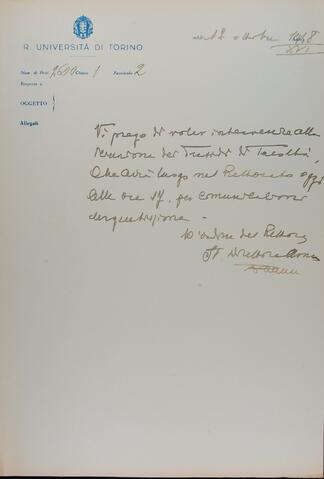 R. UNIVERSITÀ DI TORINO
addì 12 ottobre 1938
XVI
Num. di Prot. Classe 1 Fascicolo 2
Risposta a
OGGETTO
Allegati
Vi prego di voler intervenire alla
riunione dei Presidi di Facoltà,
che avrà luogo nel Rettorato oggi
alle ore 17, per comunicazioni
d'ordine del Rettore
Il Direttore